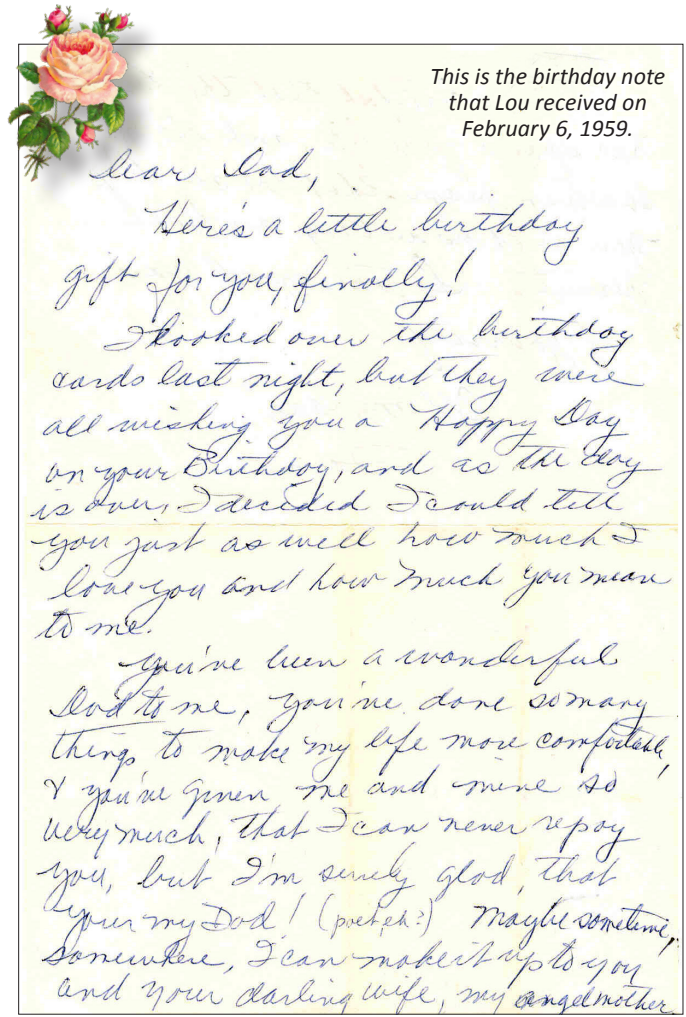 This is the birthday note
that Lou received on
February 6, 1959.
Dear Dad,
Here's a little birthday
gift for you, finally!
I looked over the birthday
cards last night, but they were
all wishing you a Happy Day
on your Birthday, and as the day
is over, I decided I could tell
you just as well how much I
love you and how much you mean
to me.
You've been a wonderful
Dad to me, you've done so many
things to make my life more comfortable,
& you've given me and mine so
very much, that I can never repay
you, but I'm surely glad, that
your my Dad! (poet, eh?) Maybe sometime,
somewhere, I can make it up to you
and your darling wife, my angel mother.